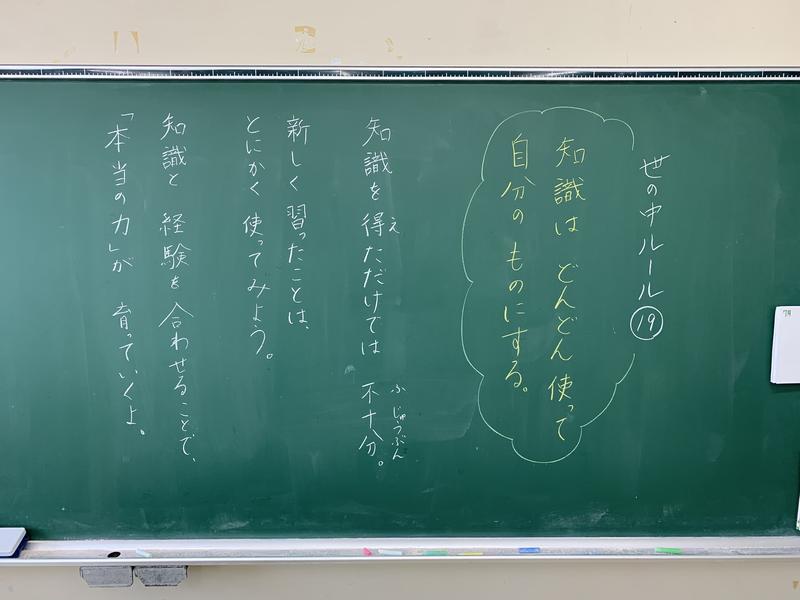 世の中ルール⑲
知識は どんどん 使って
自分の ものにする。
知識を 得ただけでは 不十分。
え
ふじゅうぶん
新しく 習ったことは、
とにかく 使ってみよう。
知識と 経験を 合わせることで、
「本当の力」が 育っていくよ。